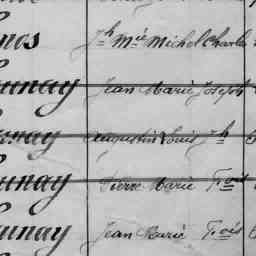 nos Jh Mie Michel Charles
unay Jean Marie Joseph
nay Augustin Louis Jh
unay Pierre Marie Fois
unay Jean Marie Fois